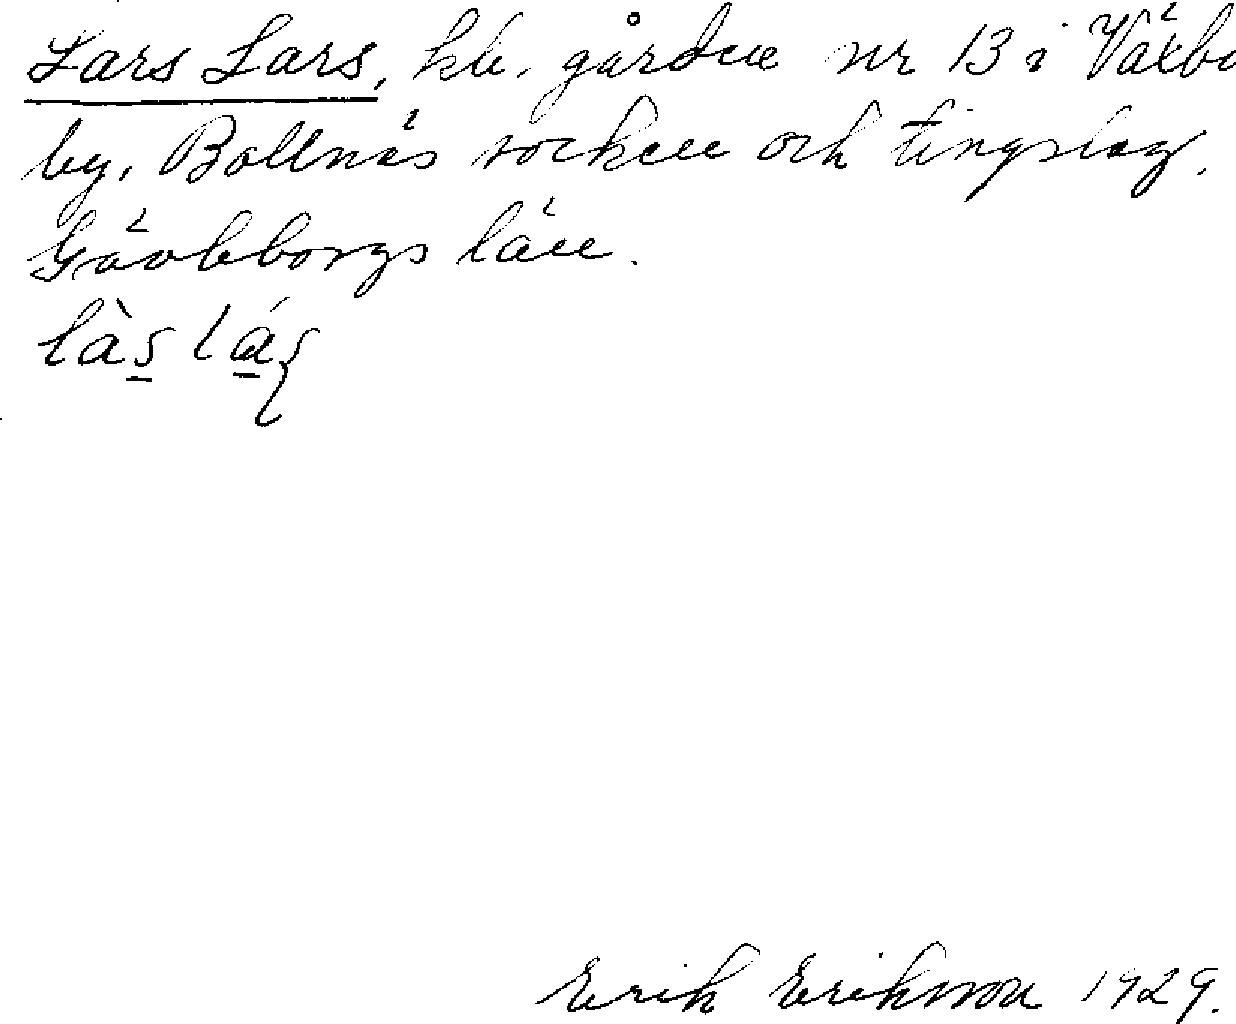 Lars Lars, kb. gården nr 13 i Växbo
by, Bollnäs socken och tingslag.
Gävleborgs län.
làs lás
Erik Eriksson 1929.